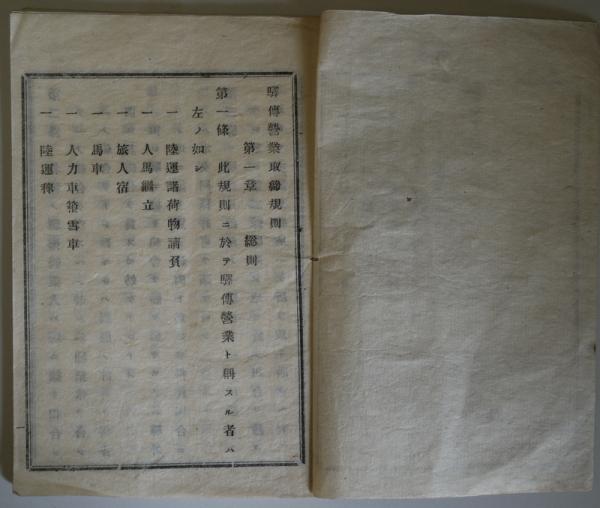 驛傳營業取締規則
第一章 總則
第一條 此規則ニ於テ驛傳營業ト稱スル者ハ
左ノ如シ
一 陸運諸荷物請負
一 人馬繼立
一 旅人宿
一 馬車
一 人力車篷雪車
一 陸運稼